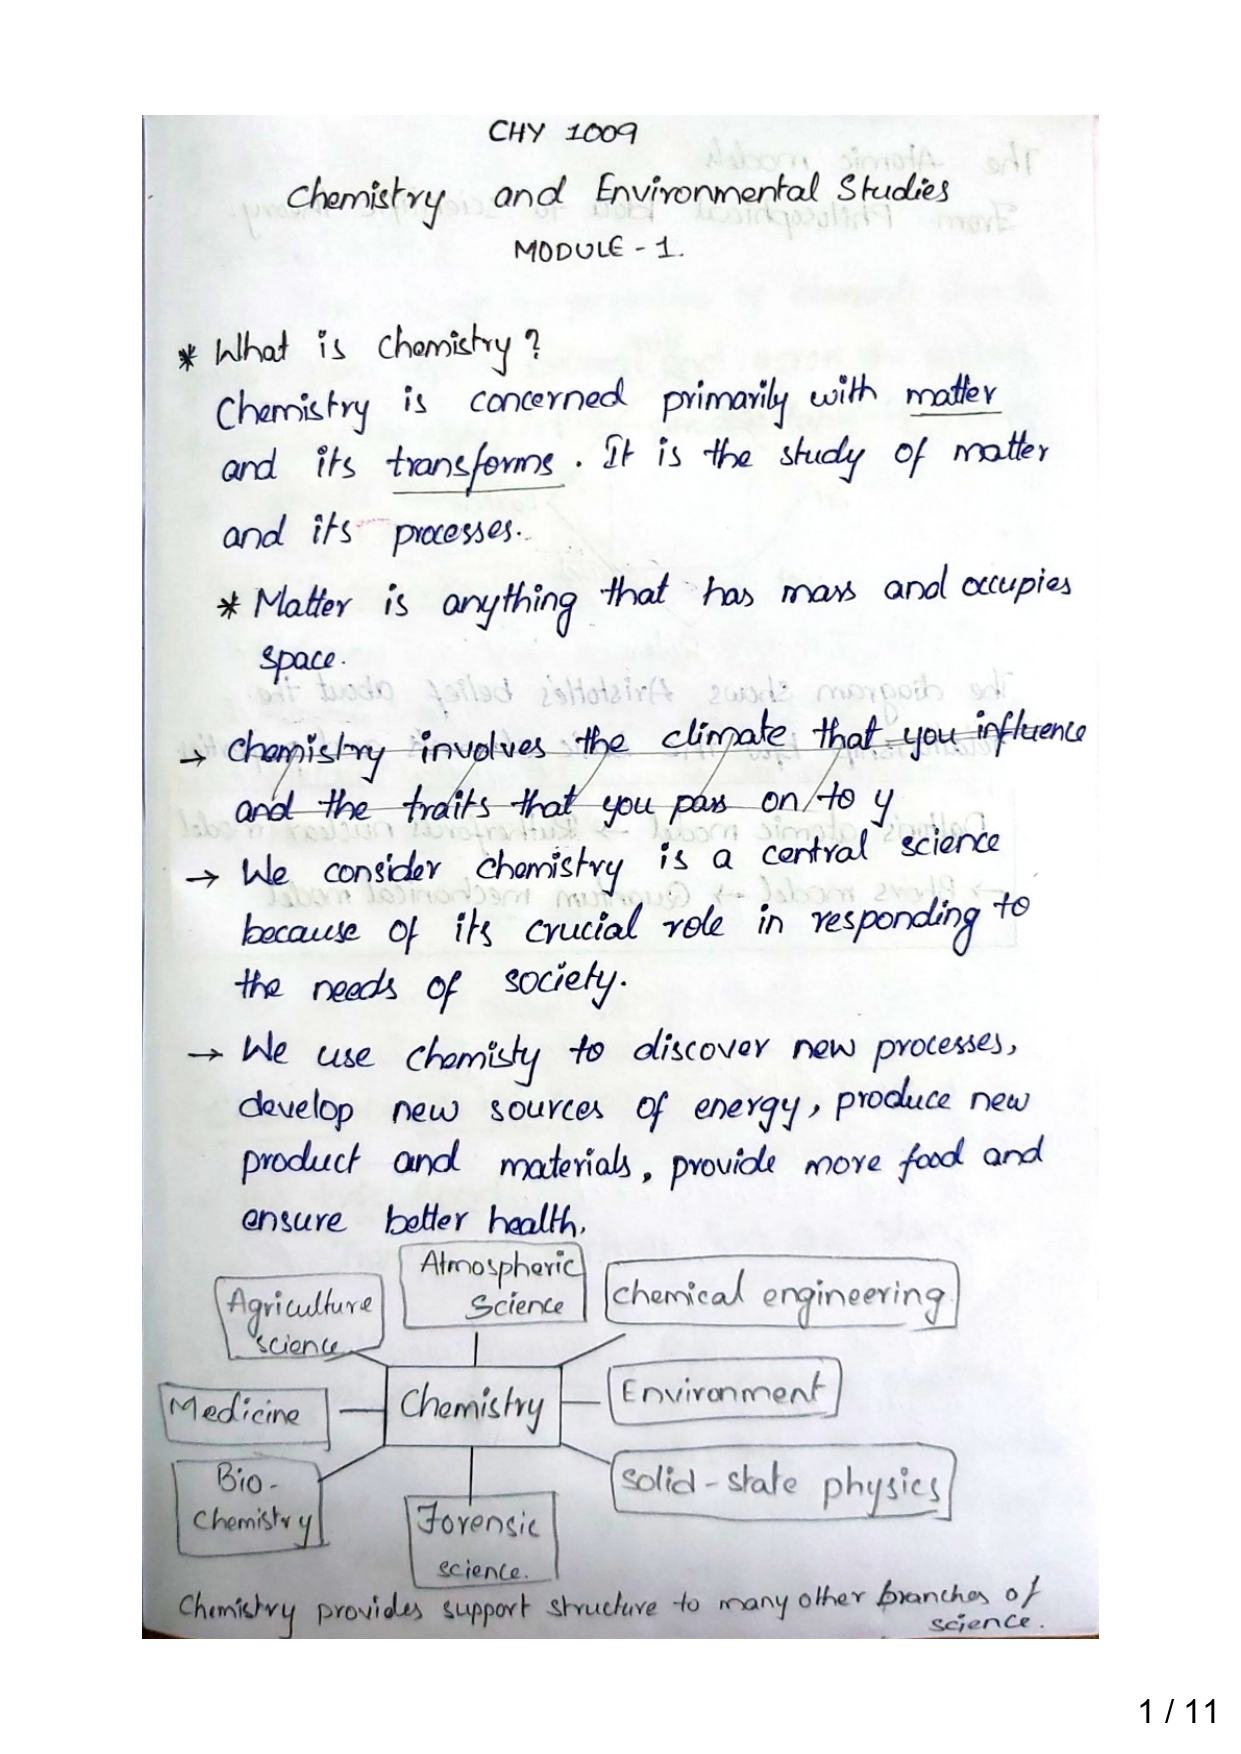 CHY 1009
Chemistry and Environmental Studies
MODULE - 1.
* What is chemistry?
Chemistry is concerned primarily with matter
and its transforms. It is the study of matter
and its processes.
* Matter is anything that has mass and occupies
space.
→ Chemistry involves the climate that you influence
and the traits that you pass on to y
→ We consider chemistry is a central science
because of its crucial role in responding to
the needs of society.
→ We use chemisty to discover new processes,
develop new sources of energy, produce new
product and materials, provide more food and
ensure better health.
Agriculture
science
Atmospheric
Science
chemical engineering
Medicine
Chemistry
Environment
Bio-
chemistry
Forensic
science.
solid-state physics
Chemistry provides support structure to many other branches of
science.
1 / 11